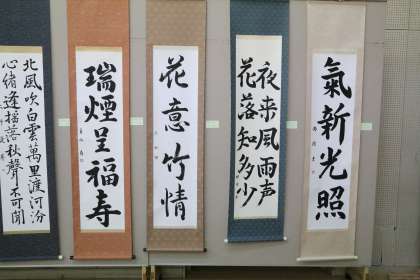 氣新光照
夜来風雨声
花落知多少
花意竹情
瑞煙呈福寿
北風吹白雲萬里渡河汾
心緒逢搖落秋聲不可聞